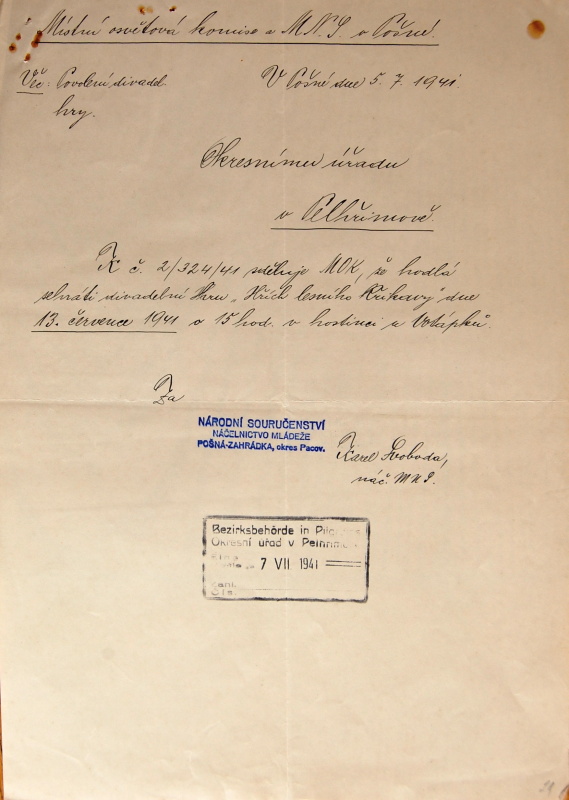 Místní osvětová komise a M.N.S. v Pošné.
Věc: Povolení divadel. V Pošné dne 5. 7. 1941.
hry.
Okresnímu úřadu
v Pelhřimově.
K č. 2/324/41 sděluje MOK, že hodlá
sehráti divadelní hru „Hřích lesního
dne
13. července 1941 o 15 hod. v hostinci u Votápků.
Za
NÁRODNÍ SOURUČENSTVÍ
NÁČELNICTVO MLÁDEŽE
POŠNÁ-ZAHRÁDKA, okres Pacov.
Karel Svoboda,
náč. MNS.
Bezirksbehörde in
Okresní úřad v Pelhřimov
7 VII 1941